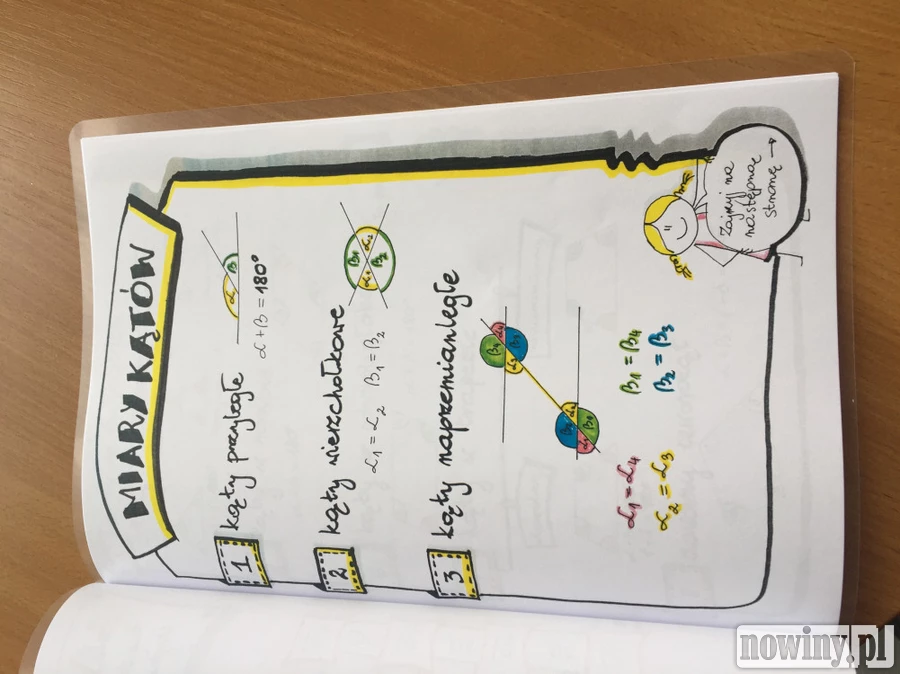 MIARY KĄTÓW
1 kąty przyległe
α β
α + β = 180°
2 kąty wierzchołkowe
α1 β1 α2 β2
α1 = α2 β1 = β2
3 kąty naprzemianległe
β4 α4 α3 β3
β2 α2 α1 β1
α1 = α4 β1 = β4
α2 = α3 β2 = β3
Zajrzyj na
następną
stronę →
nowiny.pl